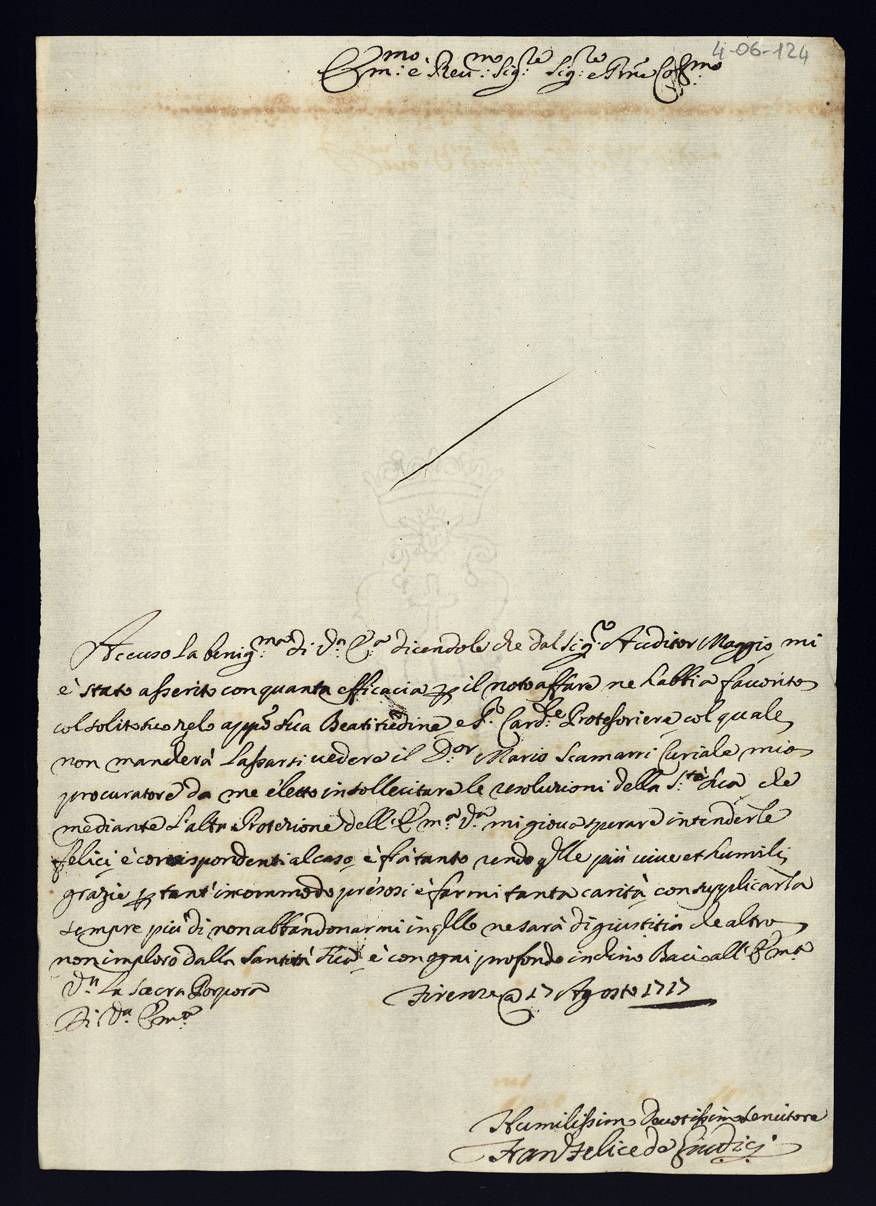 4-06-124
Em:mo e Reu:mo Sig:re Sig:re e Prne Col:mo
Accuso la benig:ma di V:a E:a dicendole che dal Sig:re Auditor Maggio mi
è stato asserito con quanta efficacia p il noto affare ne habbia favorito
col solito suo zelo appo Sua Beatitudine e Sr Card:le Protesoriere col quale
non mancherà lassarsi uedere il D:or Mario Scamarri Curiale mio
procuratore da me eletto in sollecitare le resoluzioni della S:tà Sua che
mediante l'alta Protezione dell' E:ma V:a mi gioua sperare intenderle
felici e corrispondenti al caso e frà tanto rendo q̃lle più uiue et humili
grazie p tant' incommodo presosi è farmi tanta carità con supplicarla
sempre più di non abbandonarmi in q̃llo ne sarà di giustitia che altro
non imploro dalla Santità Sua e con ogni profondo inchino Bacio all' E:ma
V:a la Sacra Porpora
Di V:a E:ma
Firenze 17 Agosto 1717
Humilissimo Deuotissimo Seruitore
Fran:o Felice de Giudici